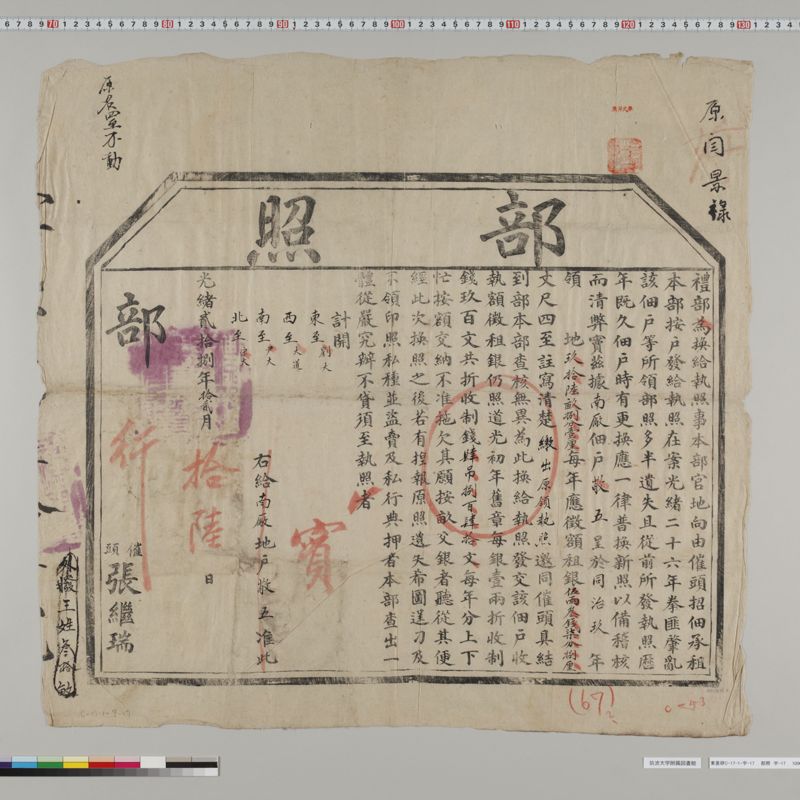 部照
禮部為換給執照事本部官地向由催頭招佃承租
本部按戶發給執照在案光緒二十六年拳匪肇亂
該佃戶等所領部照多半遺失且從前所發執照歷
年既久佃戶時有更換應一律普換新照以備稽核
而清弊竇茲據南廠佃戶敬五呈於同治玖年
領地玖拾陸畝捌分壹厘每年應徵額租銀伍兩叁錢柒分捌厘
丈尺四至註寫清楚繳出原領執照邀同催頭具結
到部本部查核無異為此換給執照發交該佃戶收
執額徵租銀仍照道光初年舊章每銀壹兩折收制
錢玖百文共折收制錢肆吊捌百肆拾文每年分上下
忙按額交納不准拖欠其願按畝交銀者聽從其便
經此次換照之後若有捏報原照遺失布圖逞刁及
不領印照私種並盜賣及私行典押者本部查出一
體從嚴究辦不貸須至執照者
計開
東至劉大
西至大道
南至尹大
北至
右給南廠地戶敬五准此
光緒貳拾捌年拾貳月拾陸日
部
行
實
催頭張繼瑞
原閆景祿
原名四至不動
王姓
(67)
C-53
70 80 90 100 110 120 130
筑波大学附属図書館